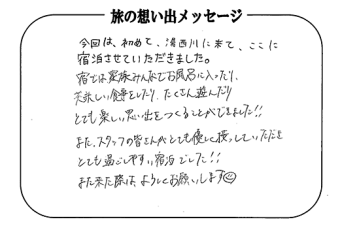 旅の想い出メッセージ
今回は、初めて、湯西川に来て、ここに
宿泊させていただきました。
宿では家族みんなでお風呂に入ったり、
美味しい食事をしたり、たくさん遊んだり
とても楽しい思い出をつくることができました!!
また、スタッフの皆さんがとても優しく接していただき
とても過ごしやすい宿泊でした!!
また来た際は、よろしくお願いします☺